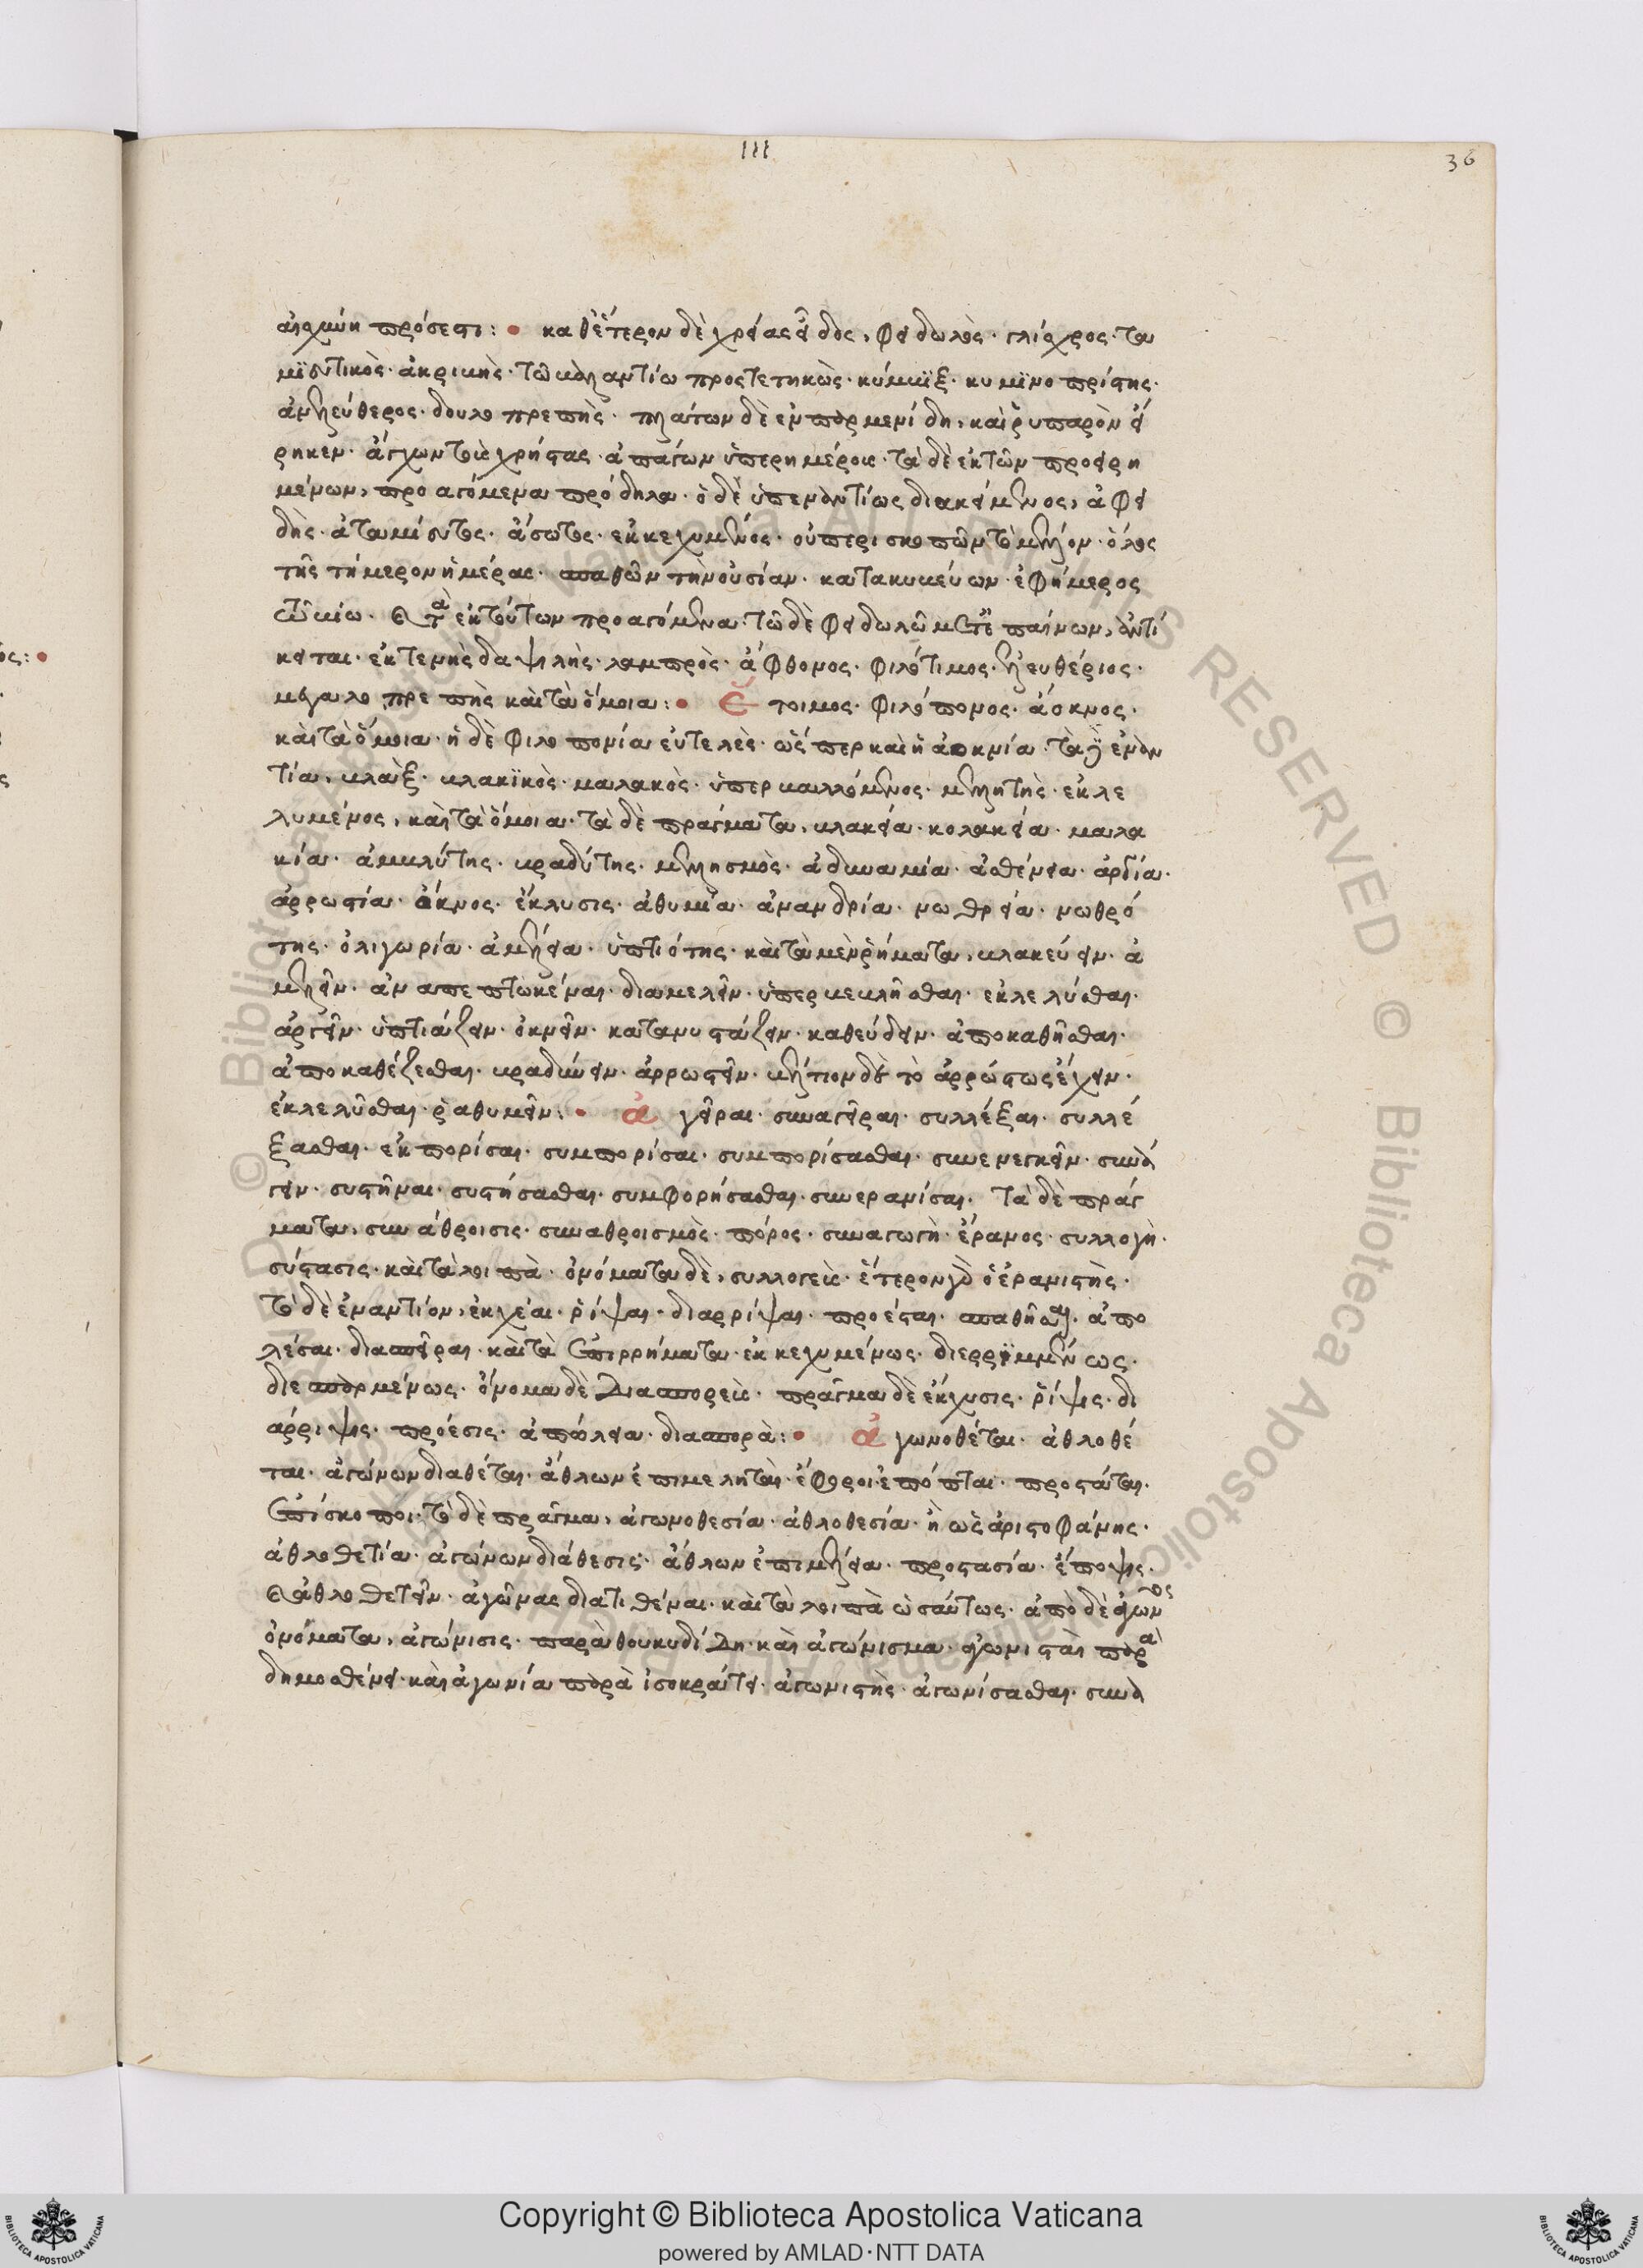 III
36
αἰσχύνη πρόσεστι: • καθ' ἕτερον δὲ χρείας εἶδος, φειδωλός· γλίσχρος· τα
μιευτικὸς· ἀκριβὴς· τῶ βαλαντίω προστετηκὼς· κύμβιξ· κυμινοπρίστης·
ἀνελεύθερος· δουλοπρεπής· πλάτων δὲ ἐν παρμενίδη, καὶ ῥυπαρὸν εἴ
ρηκεν· ἄγχων τοὺς χρήστας· ἀπαιτῶν ὑπερημέρους· τὰ δὲ ἐκ τῶν προειρη
μένων, προαγόμενα πρόδηλα· ὁ δὲ ὑπεναντίως διακείμενος, ἀφει
δὴς· ἀταμίευτος· ἄσωτος· ἐκκεχυμένος· οὐ περισκοπῶν τὸ μέλλον· ὅλος
τῆς τήμερον ἡμέρας· σπαθῶν τὴν οὐσίαν· κατακυκεύων· ἐφήμερος
τῶ βίω· καὶ τὰ ἐκ τούτων προαγόμενα· τῶ δὲ φειδωλῶ μετ' ἐπαίνων, ἀντί
κειται· ἐκτενὴς δαψιλὴς· λαμπρὸς· ἄφθονος· φιλότιμος· ἐλευθέριος·
μεγαλοπρεπὴς καὶ τὰ ὅμοια: • Ἕ τοιμος· φιλόπονος· ἄοκνος·
καὶ τὰ ὅμοια· ἡ δὲ φιλοπονία εὐτελὲς· ὥσπερ καὶ ἡ ἀοκνία· τὰ δὲ ἐναν
τία, βλὰξ· βλακικὸς· μαλακὸς· ὑπερβαλλόμενος· μελλητὴς· ἐκλε
λυμένος, καὶ τὰ ὅμοια· τὰ δὲ πράγματα, βλακεία· κολακεία· μαλα
κία· ἀμβλύτης· βραδύτης· μελλησμὸς· ἀδυναμία· ἀσθένεια· ἀργία·
ἀρρωστία· ὄκνος· ἔκλυσις· ἀθυμία· ἀνανδρία· νωθρεία· νωθρό
της· ὀλιγωρία· ἀμέλεια· ὑπτιότης· καὶ τὰ μὲν ῥήματα, βλακεύειν· ἀ
μελεῖν· ἀναπεπτωκέναι· διαμελεῖν· ὑπερβεβλῆσθαι· ἐκλελύσθαι·
ἀργεῖν· ὑπτιάζειν· ὀκνεῖν· κατανυστάζειν· καθεύδειν· ἀποκαθῆσθαι·
ἀποκαθέζεσθαι· βραδύνειν· ἀρρωστεῖν· βέλτιον δὲ τὸ ἀρρώστως ἔχειν·
ἐκλελῦσθαι· ῥαθυμεῖν: • Ἀ γεῖραι· συναγεῖραι· συλλέξαι· συλλέ
ξασθαι· ἐκπορίσαι· συμπορίσαι· συμπορίσασθαι· συνενεγκεῖν· συνά
γειν· συστῆναι· συστήσασθαι· συμφορήσασθαι· συνερανίσαι· Τὰ δὲ πράγ
ματα, συνάθροισις· συναθροισμὸς· πόρος· συναγωγὴ· ἔρανος· συλλογὴ·
σύστασις· καὶ τὰ λοιπὰ· ὀνόματα δὲ, συλλογεὺς· ἕτερον γὰρ ὁ ἐρανιστὴς·
τὸ δὲ ἐναντίον, ἐκχέαι· ῥίψαι· διαρρίψαι· προέσται· σπαθῆσαι· ἀπο
λέσαι· διασπεῖραι· καὶ τὰ ἐπιρρήματα· ἐκκεχυμένως· διερριμμένως·
διεσπαρμένως· ὄνομα δὲ διασπορεὺς· πρᾶγμα δὲ ἔκχυσις· ῥίψις· δι
άρριψις· πρόεσις· ἀπώλεια· διασπορὰ: • Ἀ γωνοθέται· ἀθλοθέ
ται· ἀγώνων διαθέται· ἄθλων ἐπιμεληταὶ· ἔφοροι· ἐπόπται· προστάται·
ἐπίσκοποι· τὸ δὲ πρᾶγμα, ἀγωνοθεσία· ἀθλοθεσία· ἢ ὡς ἀριστοφάνης·
ἀθλοθετία· ἀγώνων διάθεσις· ἄθλων ἐπιμέλεια· προστασία· ἔποψις·
καὶ ἀθλοθετεῖν· ἀγῶνας διατιθέναι· καὶ τὰ λοιπὰ ὡσαύτως· ἀπὸ δὲ ἀγῶνος
ὀνόματα, ἀγώνισις· παρὰ θουκυδίδη· καὶ ἀγώνισμα· ἀγωνισταὶ παρὰ
δημοσθένει· καὶ ἀγωνία παρὰ ἰσοκράτει· ἀγωνιστὴς· ἀγωνίσασθαι· συνα
ος: •
© Biblioteca Apostolica Vaticana ALL RIGHTS RESERVED © Biblioteca Apostolica Vaticana ALL RIGHTS RESERVED
Copyright © Biblioteca Apostolica Vaticana
powered by AMLAD·NTT DATA
BIBLIOTECA APOSTOLICA VATICANA
BIBLIOTECA APOSTOLICA VATICANA